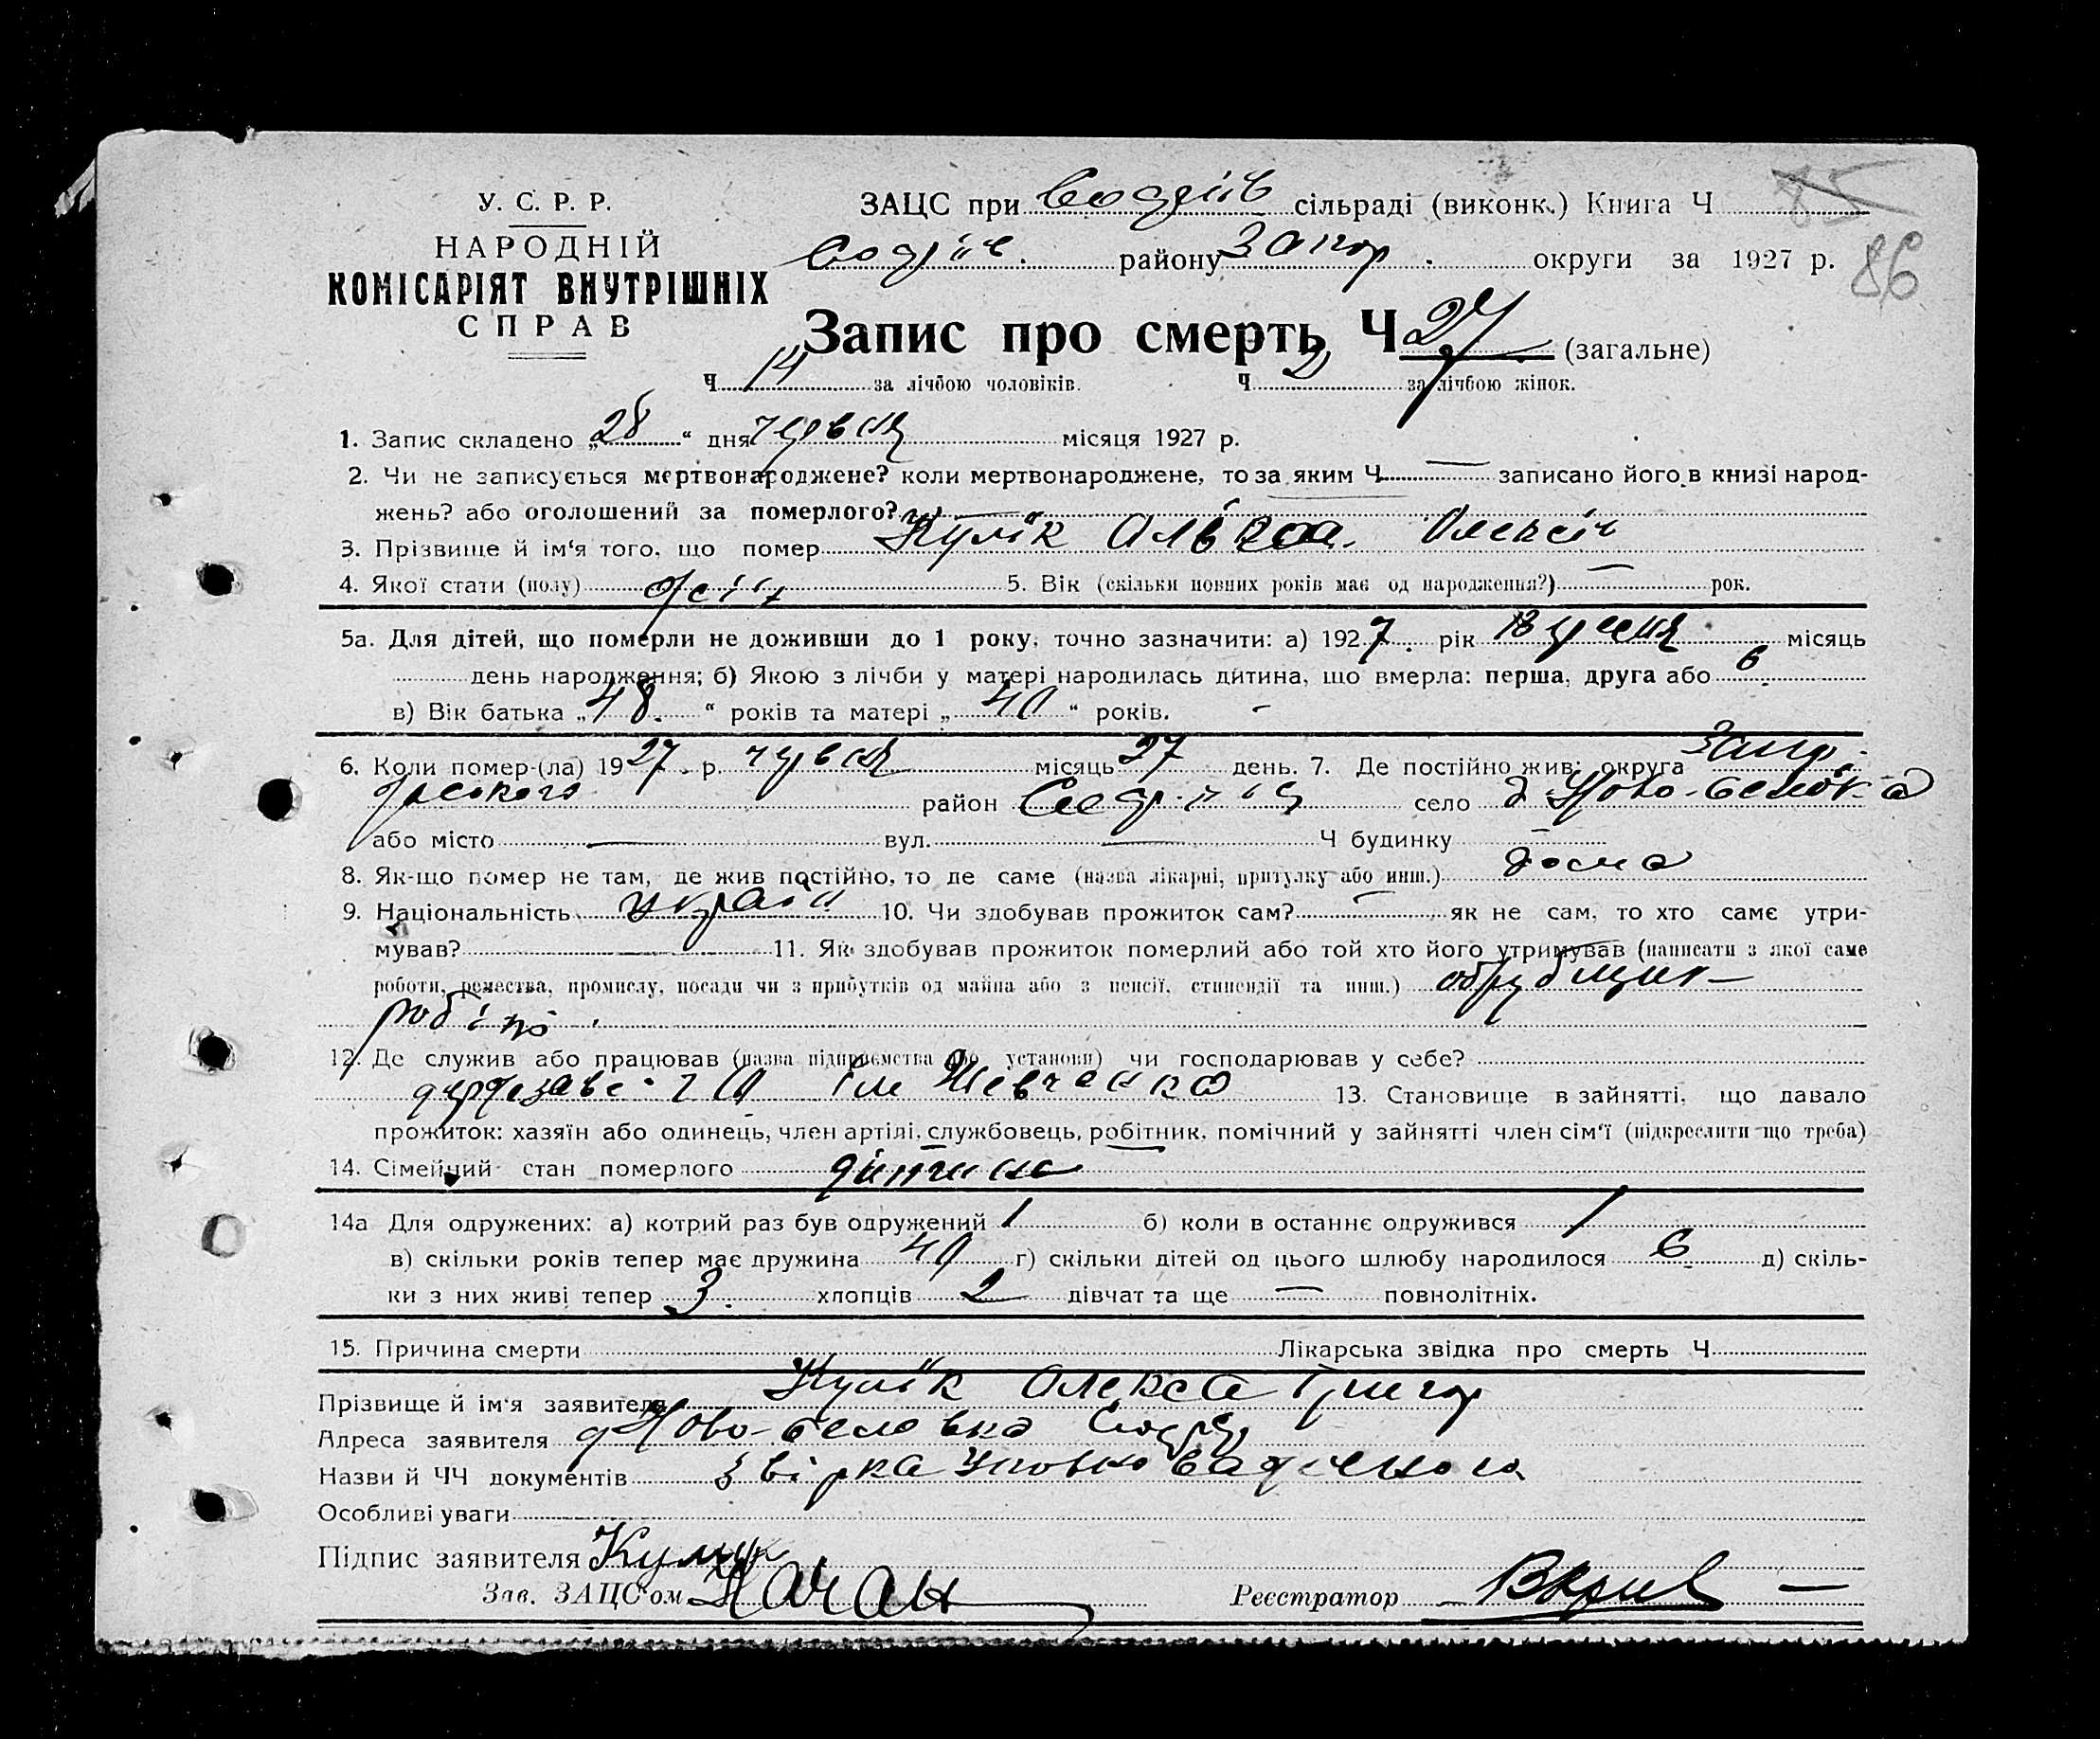 85
У. С. Р. Р.
ЗАЦС при сільраді (виконк.) Книга Ч
НАРОДНІЙ
району Запор. округи за 1927 р.
86
КОМІСАРІЯТ ВНУТРІШНІХ
СПРАВ
Запис про смерть Ч 27 (загальне)
Ч 14 за лічбою чоловіків. Ч за лічбою жінок.
1. Запис складено „28“ дня червня місяця 1927 р.
2. Чи не записується мертвонароджене? коли мертвонароджене, то за яким Ч — записано його в книзі народ-
жень? або оголошений за померлого?
3. Прізвище й ім'я того, що помер Кулік
4. Якої стати (полу) 5. Вік (скільки повних років має од народження?) — рок.
5а. Для дітей, що померли не доживши до 1 року, точно зазначити: а) 1927. рік місяць
день народження; б) Якою з лічби у матері народилась дитина, що вмерла: перша, друга або 6.
в) Вік батька „48.“ років та матері „40“ років.
6. Коли помер-(ла) 1927. р. червня місяць 27 день. 7. Де постійно жив: округа Запор.
район село
або місто — вул. — Ч будинку —
8. Як-що помер не там, де жив постійно, то де саме (назва лікарні, притулку або инш.) дома
9. Національність україн 10. Чи здобував прожиток сам? — як не сам, то хто саме утри-
мував? — 11. Як здобував прожиток померлий або той хто його утримував (написати з якої саме
роботи, ремества, промислу, посади чи з прибутків од майна або з пенсії, стипендії та инш.) обрубщик
12. Де служив або працював (назва підприємства або установи) чи господарював у себе?
ім Шевченка 13. Становище в зайнятті, що давало
прожиток: хазяїн або одинець, член артілі, службовець, робітник, помічний у зайнятті член сім'ї (підкреслити що треба)
14. Сімейний стан померлого дитина
14а Для одружених: а) котрий раз був одружений 1 б) коли в останнє одружився 1
в) скільки років тепер має дружина 40 г) скільки дітей од цього шлюбу народилося 6 д) скіль-
ки з них живі тепер 3. хлопців 2 дівчат та ще — повнолітніх.
15. Причина смерти Лікарська звідка про смерть Ч
Прізвище й ім'я заявителя Кулік Олекса Григор
Адреса заявителя
Назви й ЧЧ документів
Особливі уваги
Підпис заявителя Кулик
Зав. ЗАЦС'ом Реєстратор